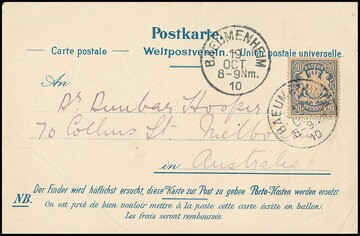 Postkarte
Carte postale Weltpostverein. Union postale universelle.
BAEUMENHEIM
19
OCT
8-9 Nm.
10
BAYERN
An
Dr Dunbar Hooper
70 Collins St. Melbo
in Australia
NB. Der Finder wird höflichst ersucht, diese Karte zur Post zu geben Porto-Kosten werden ersetzt.
On est prié de bien vouloir mettre à la poste cette carte écrite en ballon;
Les frais seront remboursés.